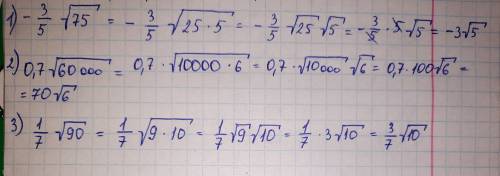 1) -3/5 √75 = -3/5 · √(25 · 5) = -3/5 √25 √5 = -3/5 · 5 · √5 = -3√5
2) 0,7√60 000 = 0,7 · √(10000 · 6) = 0,7 · √10000 √6 = 0,7 · 100√6 =
= 70√6
3) 1/7 √90 = 1/7 √(9 · 10) = 1/7 √9 √10 = 1/7 · 3√10 = 3/7 √10